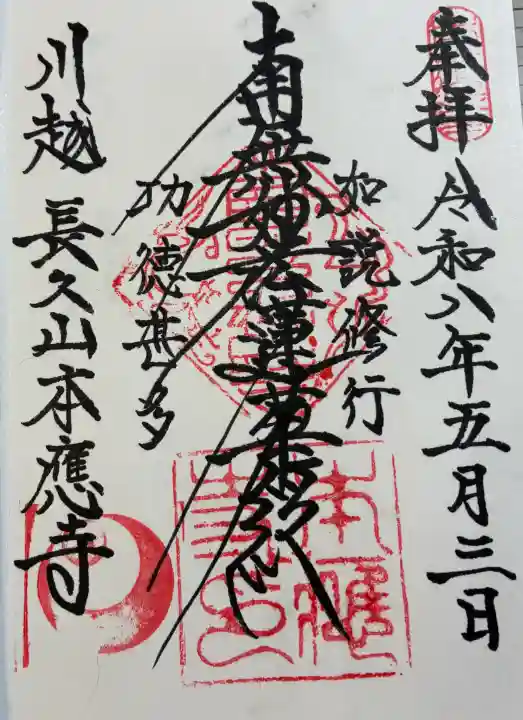 奉拝 令和八年五月三日
如説修行
南無妙法蓮華経
功徳甚多
川越 長久山本應寺
本應